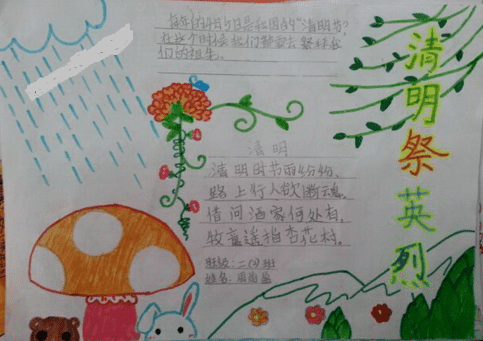 清明祭英烈
每年的4月5日是祖国的“清明节”
在这个时候我们都要去祭拜我
们的祖先。
清明
清明时节雨纷纷，
路上行人欲断魂。
借问酒家何处有，
牧童遥指杏花村。
班级：二(四)班
姓名：